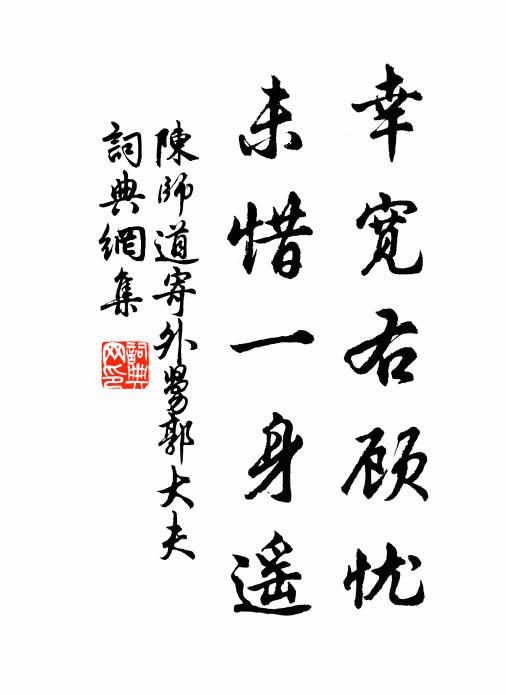 幸宽右顾忧
未惜一身遥
陳師道寄外舅郭大夫
詞典網集
詞典网印